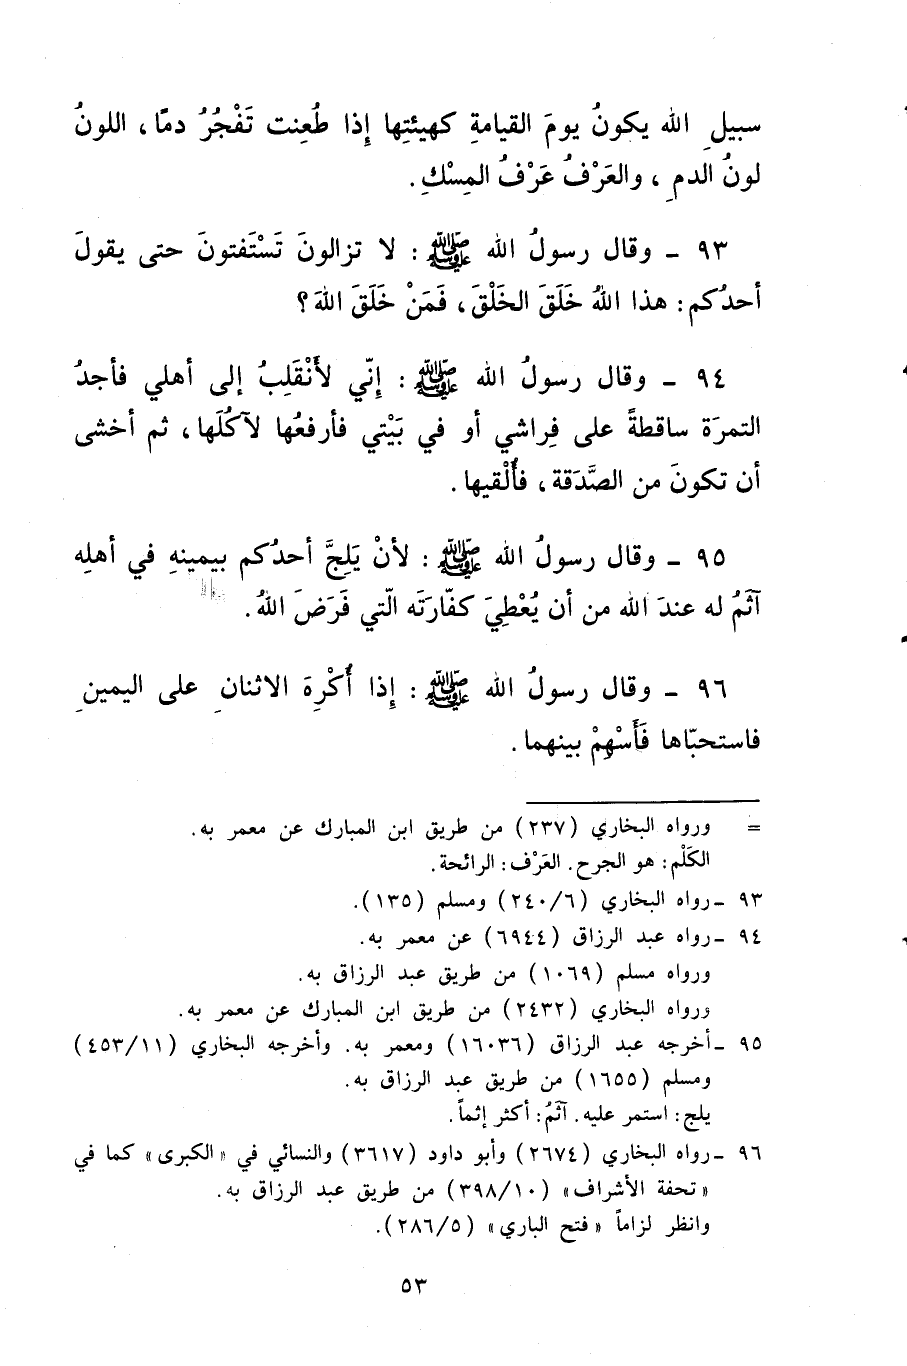 سبيلِ الله يكونُ يومَ القيامةِ كهيئتِها إِذا طُعِنت تَفْجُرُ دمًا، اللونُ
لونُ الدمِ، والعَرْفُ عَرْفُ المِسْكِ.
٩٣ - وقال رسولُ الله ﷺ: لا تزالونَ تَسْتَفتونَ حتى يقولَ
أحدُكم: هذا اللهُ خَلَقَ الخَلْقَ، فَمَنْ خَلَقَ اللهَ؟
٩٤ - وقال رسولُ الله ﷺ: إِنّي لأَنْقَلِبُ إلى أهلي فأجدُ
التمرَة ساقطةً على فِراشي أو في بَيْتي فأرفعُها لآكُلَها، ثم أخشى
أن تكونَ من الصَّدَقة، فأُلْقيها.
٩٥ - وقال رسولُ الله ﷺ: لأنْ يَلِجَّ أحدُكم بيمينهِ في أهلهِ
آثَمُ له عندَ الله من أن يُعْطِيَ كفّارَتَه الّتي فَرَضَ اللهُ.
٩٦ - وقال رسولُ الله ﷺ: إِذا أُكْرِهَ الاثنانِ على اليمينِ
فاستحبّاها فَأَسْهِمْ بينهما.
= ورواه البخاري (٢٣٧) من طريق ابن المبارك عن معمر به.
الكَلْم: هو الجرح. العَرْف: الرائحة.
٩٣ - رواه البخاري (٢٤٠/٦) ومسلم (١٣٥).
٩٤ - رواه عبد الرزاق (٦٩٤٤) عن معمر به.
ورواه مسلم (١٠٦٩) من طريق عبد الرزاق به.
ورواه البخاري (٢٤٣٢) من طريق ابن المبارك عن معمر به.
٩٥ - أخرجه عبد الرزاق (١٦٠٣٦) ومعمر به. وأخرجه البخاري (٤٥٣/١١)
ومسلم (١٦٥٥) من طريق عبد الرزاق به.
يلج: استمر عليه. آثَمُ: أكثر إثماً.
٩٦ - رواه البخاري (٢٦٧٤) وأبو داود (٣٦١٧) والنسائي في «الكبرى» كما في
«تحفة الأشراف» (٣٩٨/١٠) من طريق عبد الرزاق به.
وانظر لزاماً «فتح الباري» (٢٨٦/٥).
٥٣